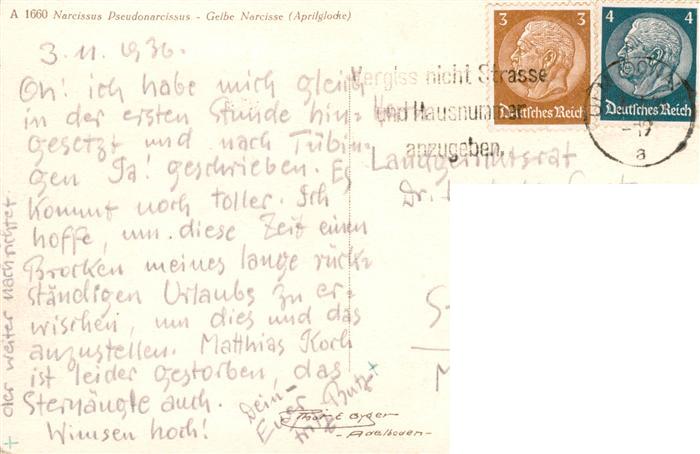 A 1660 Narcissus Pseudonarcissus - Gelbe Narcisse (Aprilglocke)
3. 11. 1936.
Oh! ich habe mich gleich
in der ersten Stunde hin-
gesetzt und nach Tübin-
gen Ja! geschrieben. Es
kommt noch toller. Ich
hoffe, um diese Zeit einen
Brocken meines lange rück-
ständigen Urlaubs zu er-
wischen, um dies und das
anzustellen. Matthias Koch
ist leider gestorben, das
auch.
hoch!
Dein-
Euer
der weiter nachrichtet
3 3
Deutsches Reich
4 4
Deutsches Reich
Vergiss nicht Strasse
und Hausnummer
anzugeben.
-19
a
Landgerichtsrat
Dr.
S
M
Photo E Gyger
- Adelboden -